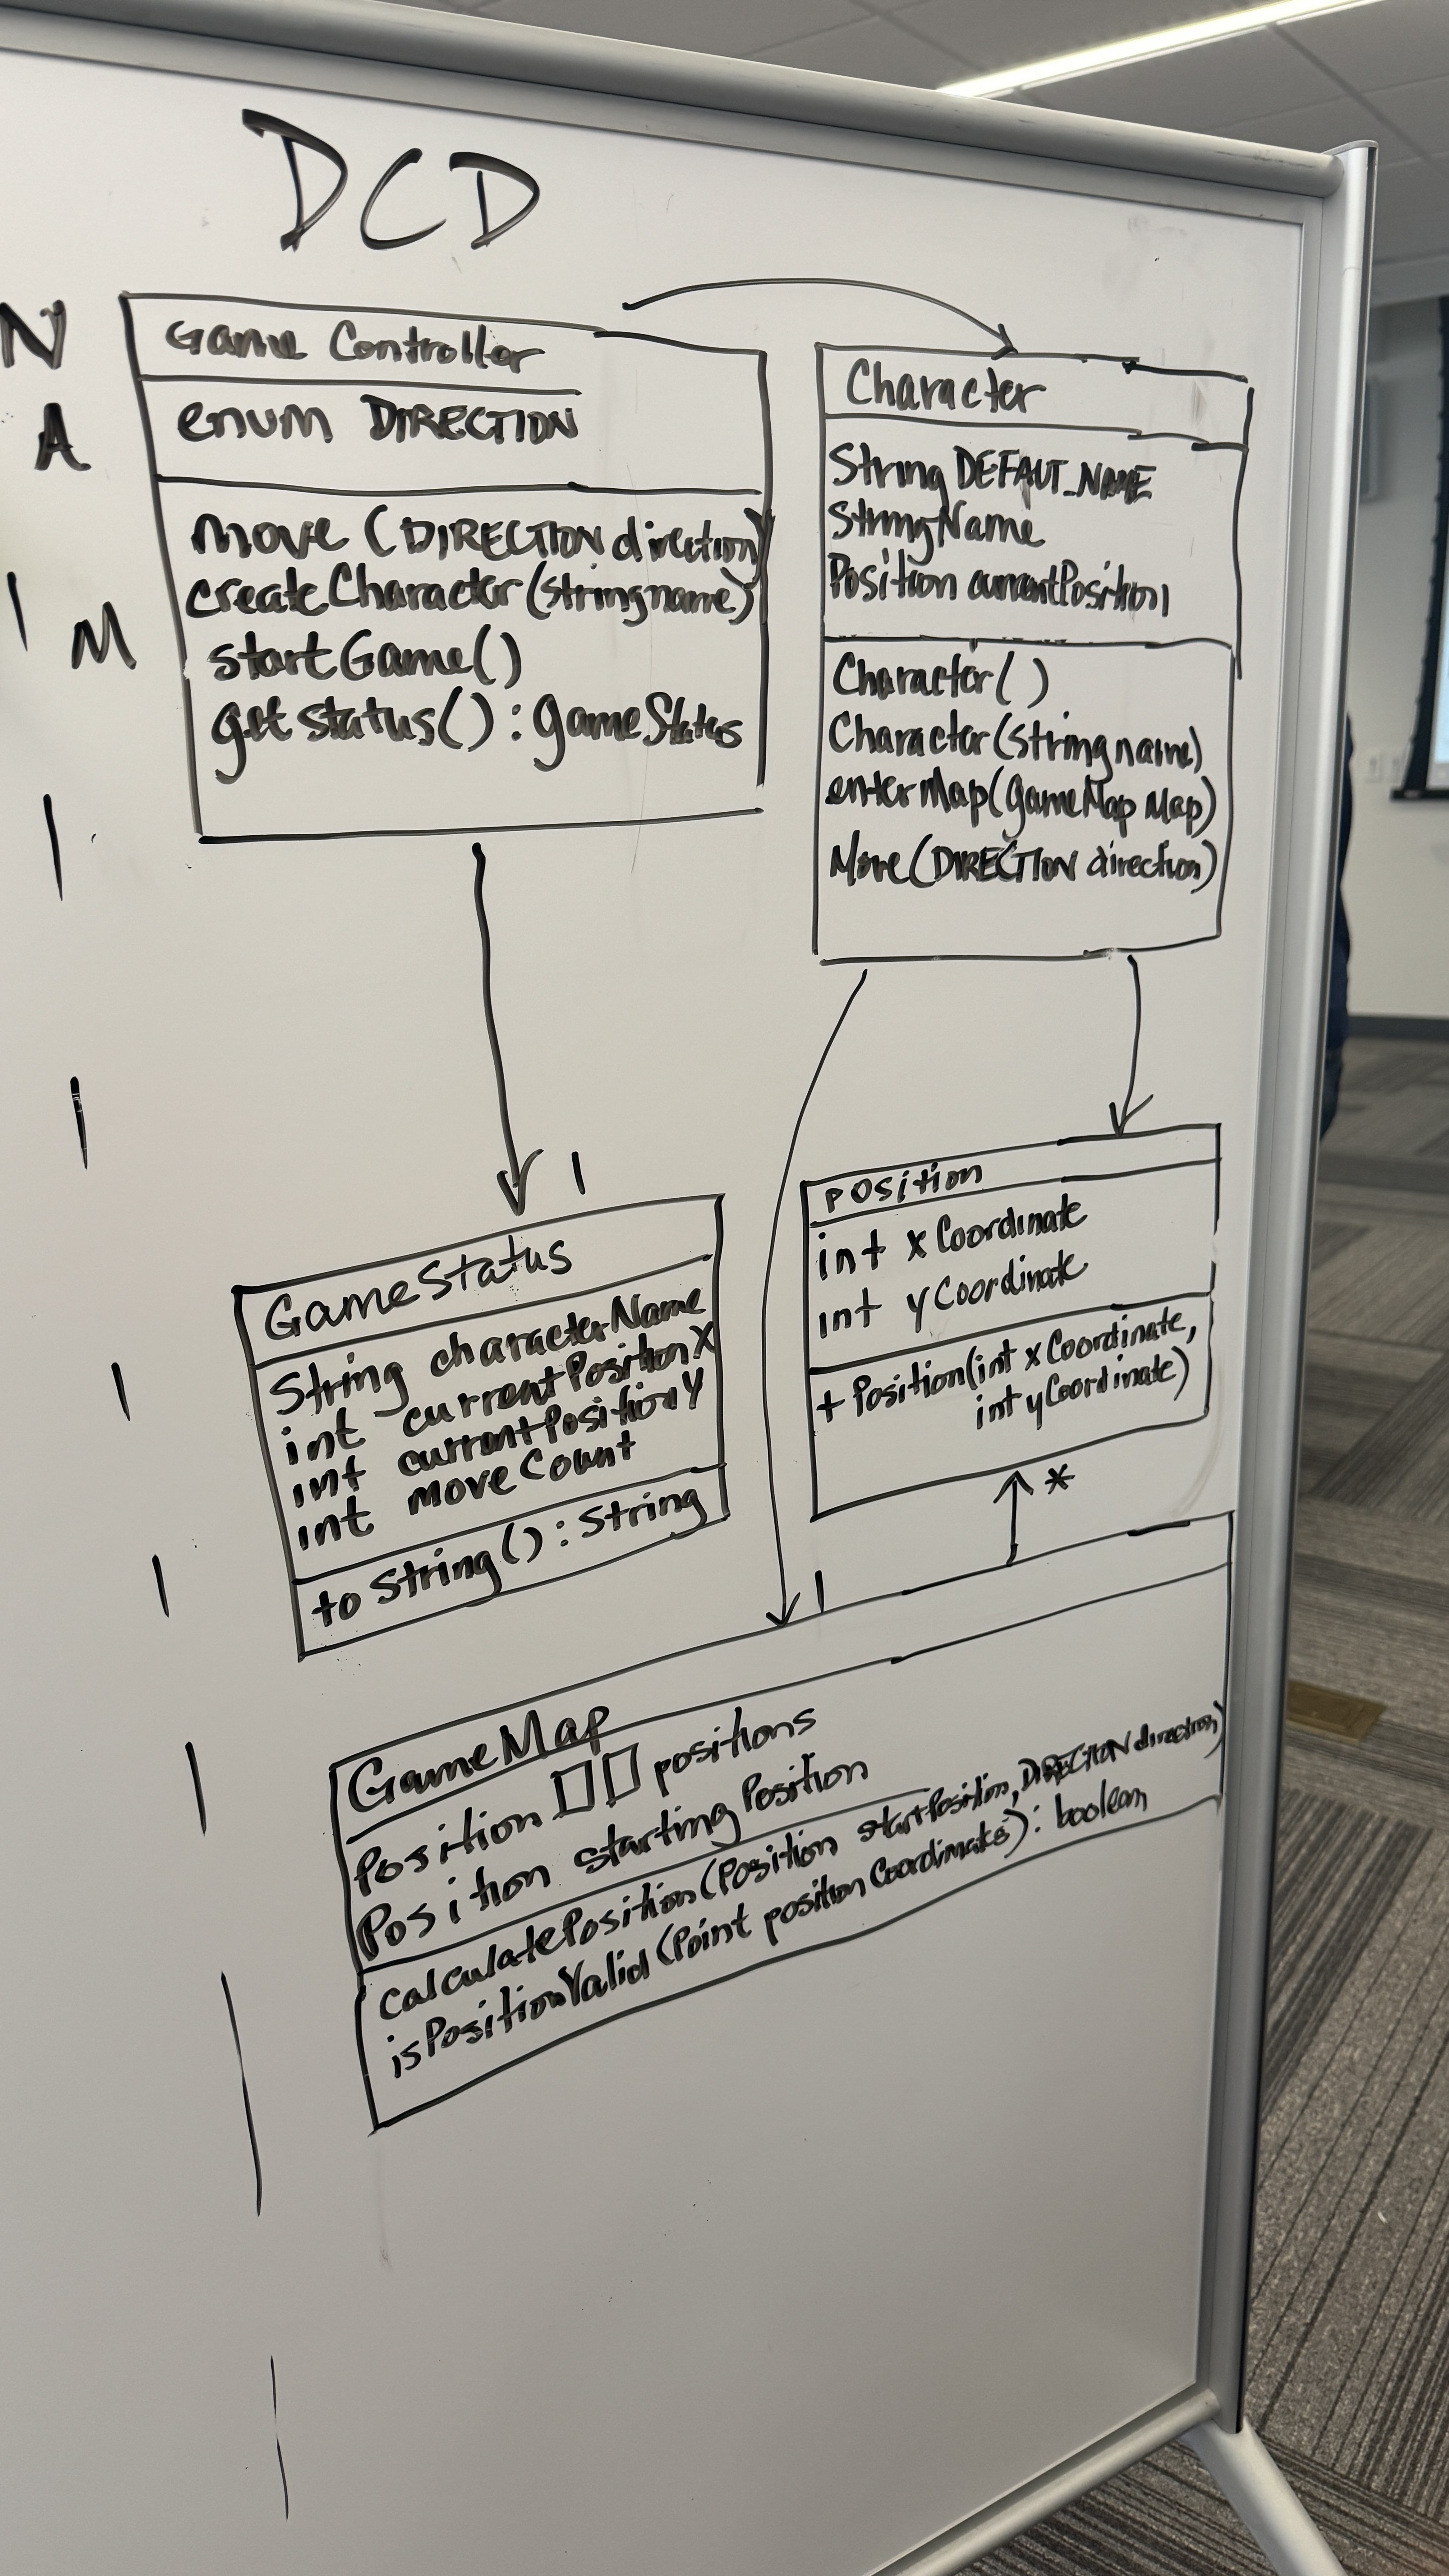 DCD
N
A
M
Game Controller
enum DIRECTION
Move (DIRECTION direction)
createCharacter(string name)
startGame()
getStatus() : gameStatus
Character
String DEFAUT_NAME
String Name
Position currentPosition
Character()
Character(string name)
enterMap(GameMap Map)
Move(DIRECTION direction)
1
GameStatus
String characterName
int currentPositionX
int currentPositionY
int moveCount
toString() : String
Position
int xCoordinate
int yCoordinate
+ Position(int xCoordinate,
int yCoordinate)
*
1
GameMap
Position [][] positions
Position startingPosition
calculatePosition(Position startPosition, DIRECTION direction)
isPositionValid(Point positionCoordinates) : boolean